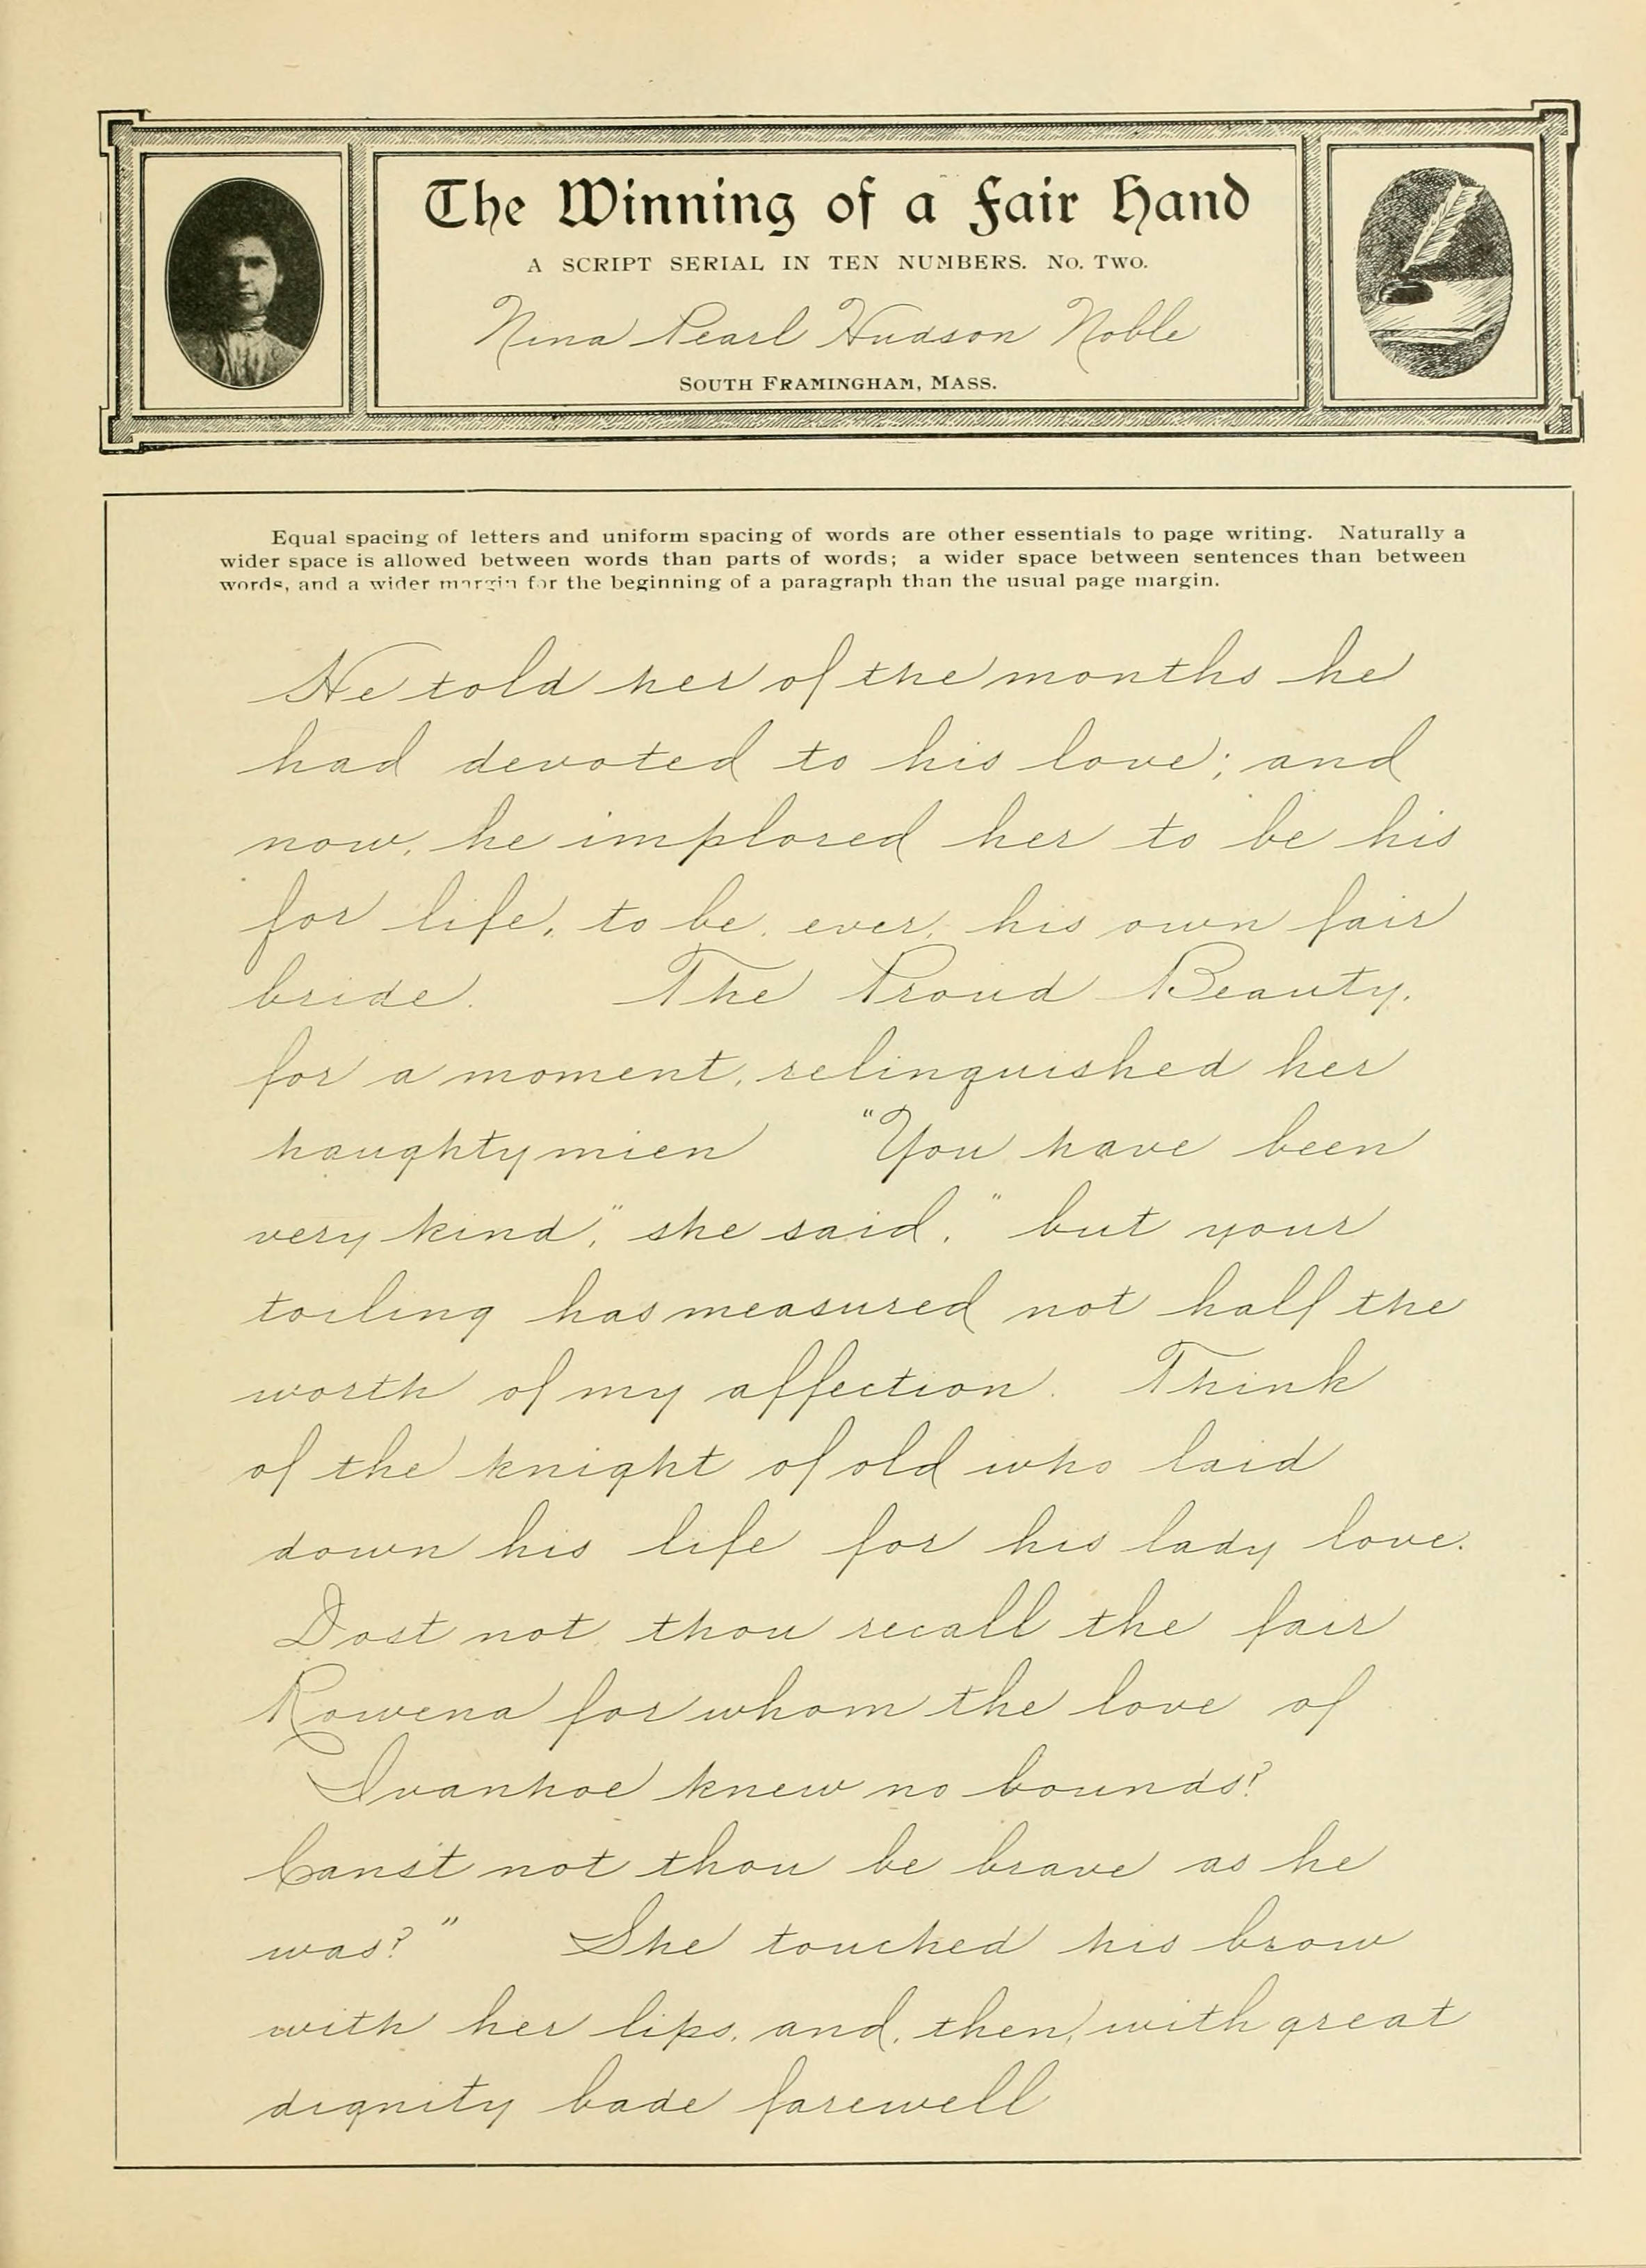 The Winning of a Fair Hand
A SCRIPT SERIAL IN TEN NUMBERS. No. Two.
Nina Pearl Hudson Noble
SOUTH FRAMINGHAM, MASS.
Equal spacing of letters and uniform spacing of words are other essentials to page writing. Naturally a
wider space is allowed between words than parts of words; a wider space between sentences than between
words, and a wider margin for the beginning of a paragraph than the usual page margin.
He told her of the months he
had devoted to his love; and
now, he implored her to be his
for life, to be, ever, his own fair
bride. The Proud Beauty,
for a moment, relinquished her
haughty mien "You have been
very kind," she said, "but your
toiling has measured not half the
worth of my affection. Think
of the knight of old who laid
down his life for his lady love.
Dost not thou recall the fair
Rowena for whom the love of
Ivanhoe knew no bounds?
Canst not thou be brave as he
was?" She touched his brow
with her lips, and, then, with great
dignity bade farewell